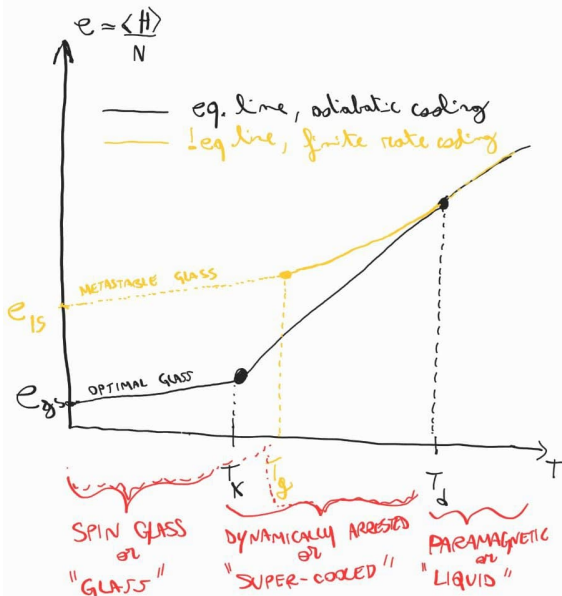 e = <H>
N
eq. line, adiabatic cooling
!eq line, finite rate cooling
METASTABLE GLASS
e_IS
OPTIMAL GLASS
e_gs
T
T_K
T_g
T_d
SPIN GLASS
or
"GLASS"
DYNAMICALLY ARRESTED
or
"SUPER-COOLED"
PARAMAGNETIC
or
"LIQUID"